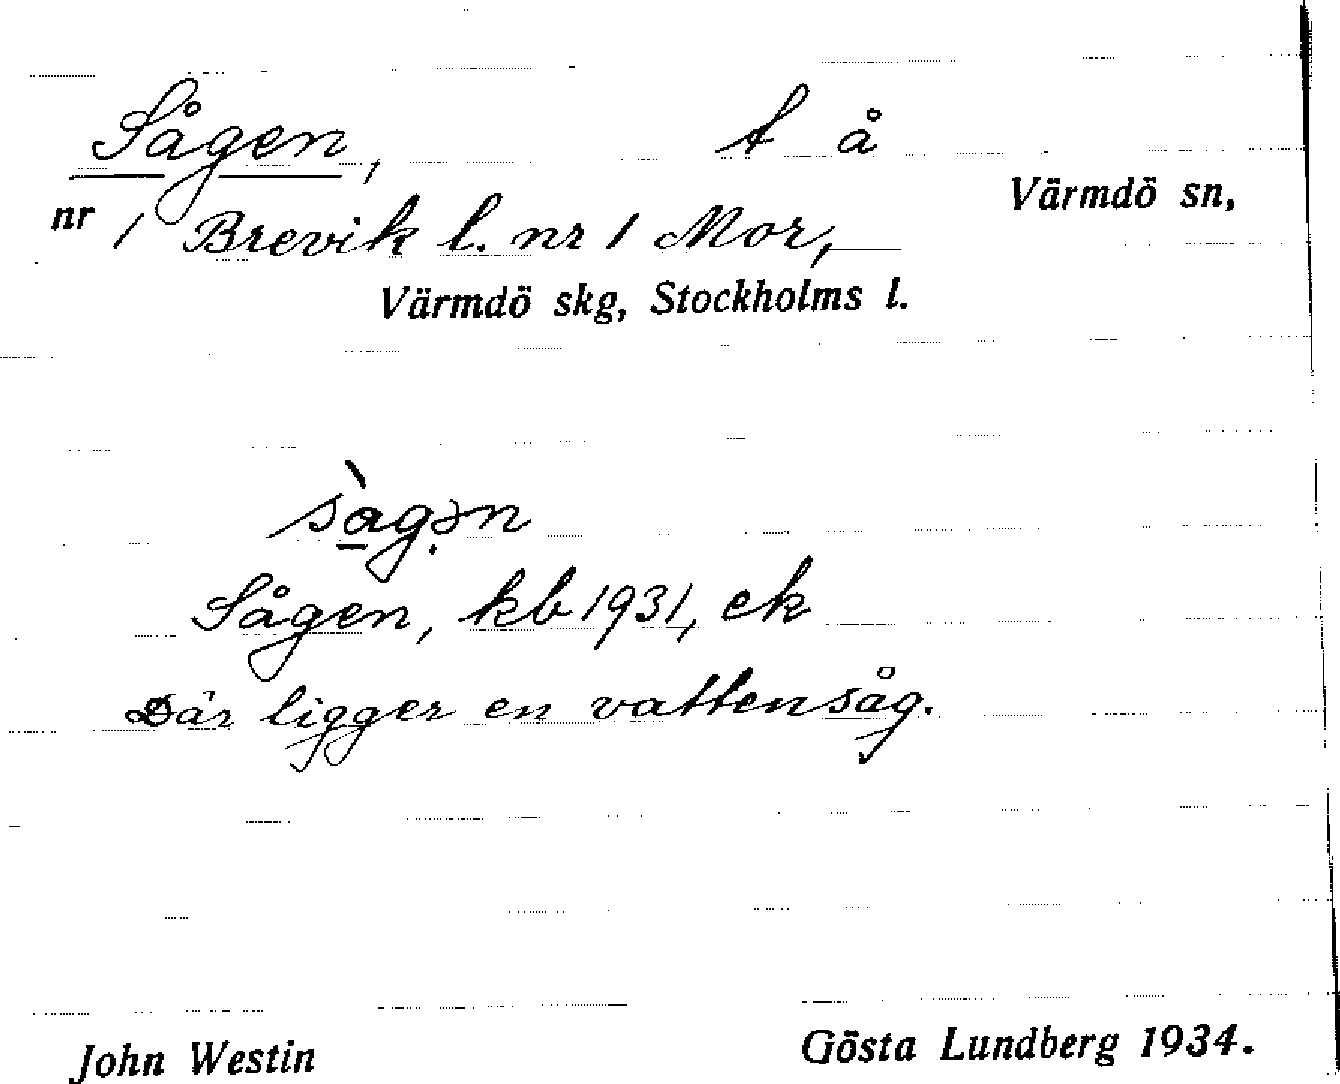 Sågen, t å
Värmdö sn,
nr 1 Brevik l. nr 1 Mor,
Värmdö skg, Stockholms l.
sàg̣ən
Sågen, kb 1931, ek
Där ligger en vattensåg.
John Westin Gösta Lundberg 1934.